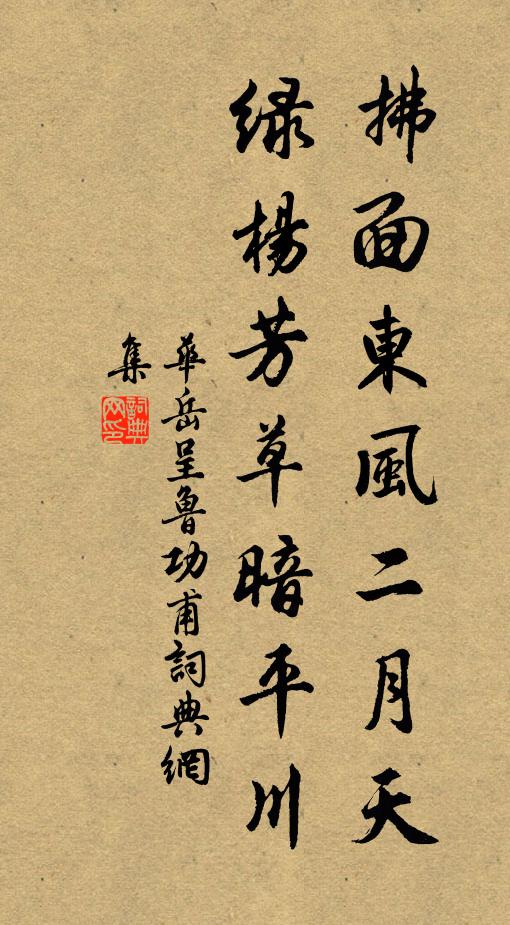 拂面東風二月天
綠楊芳草暗平川
華岳呈魯功甫詞典網
集
詞典
网印